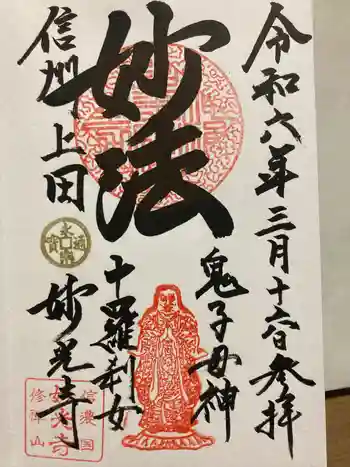 令和六年三月十六日参拝
妙法
鬼子母神
十羅刹女
信州上田
永楽通寳
妙光寺
信濃国
修禅山